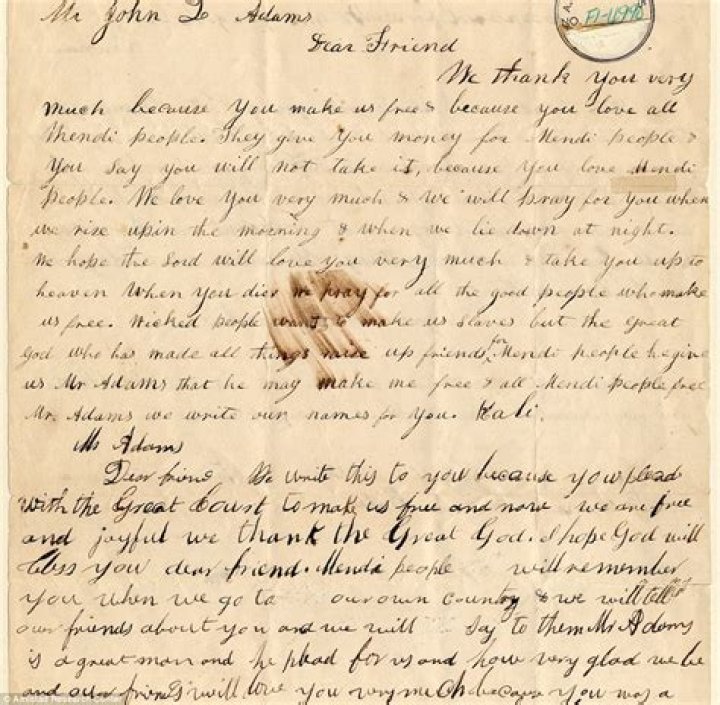 Mr John Q Adams
Dear Friend
We thank you very
much because you make us free & because you love all
Mendi people. They give you money for Mendi people &
you say you will not take it, because you love Mendi
people. We love you very much & we will pray for you when
we rise up in the morning & when we lie down at night.
We hope the Lord will love you very much & take you up to
heaven when you die. We pray for all the good people who make
us free. Wicked people want to make us slaves but the great
God who has made all things raise up friends for Mendi people he give
us Mr Adams that he may make me free & all Mendi people free
Mr Adams we write our names for you. Kali.
Mr Adams
Dear friend We write this to you because you plead
with the Great Court to make us free and now we are free
and joyful we thank the Great God. I hope God will
bless you dear friend. Mendi people will remember
you when we go to our own country & we will tell
our friends about you and we will say to them Mr Adams
is a great man and he plead for us and how very glad we be
and our friends will love you very much because you was a
© Amistad Research Center